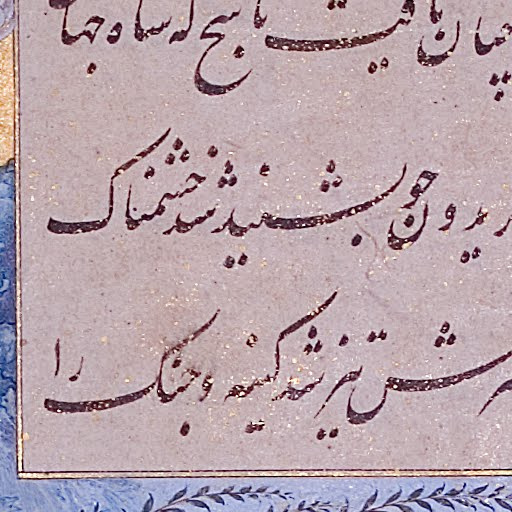 چنان یافت پاسخ که شاه جها
ریدون چو بشنید شد خشمناک
سرش تیز شد کینه و جنک را